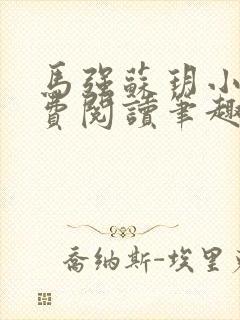 馬强蘇玥小
費閱讀筆趣
喬納斯-埃里